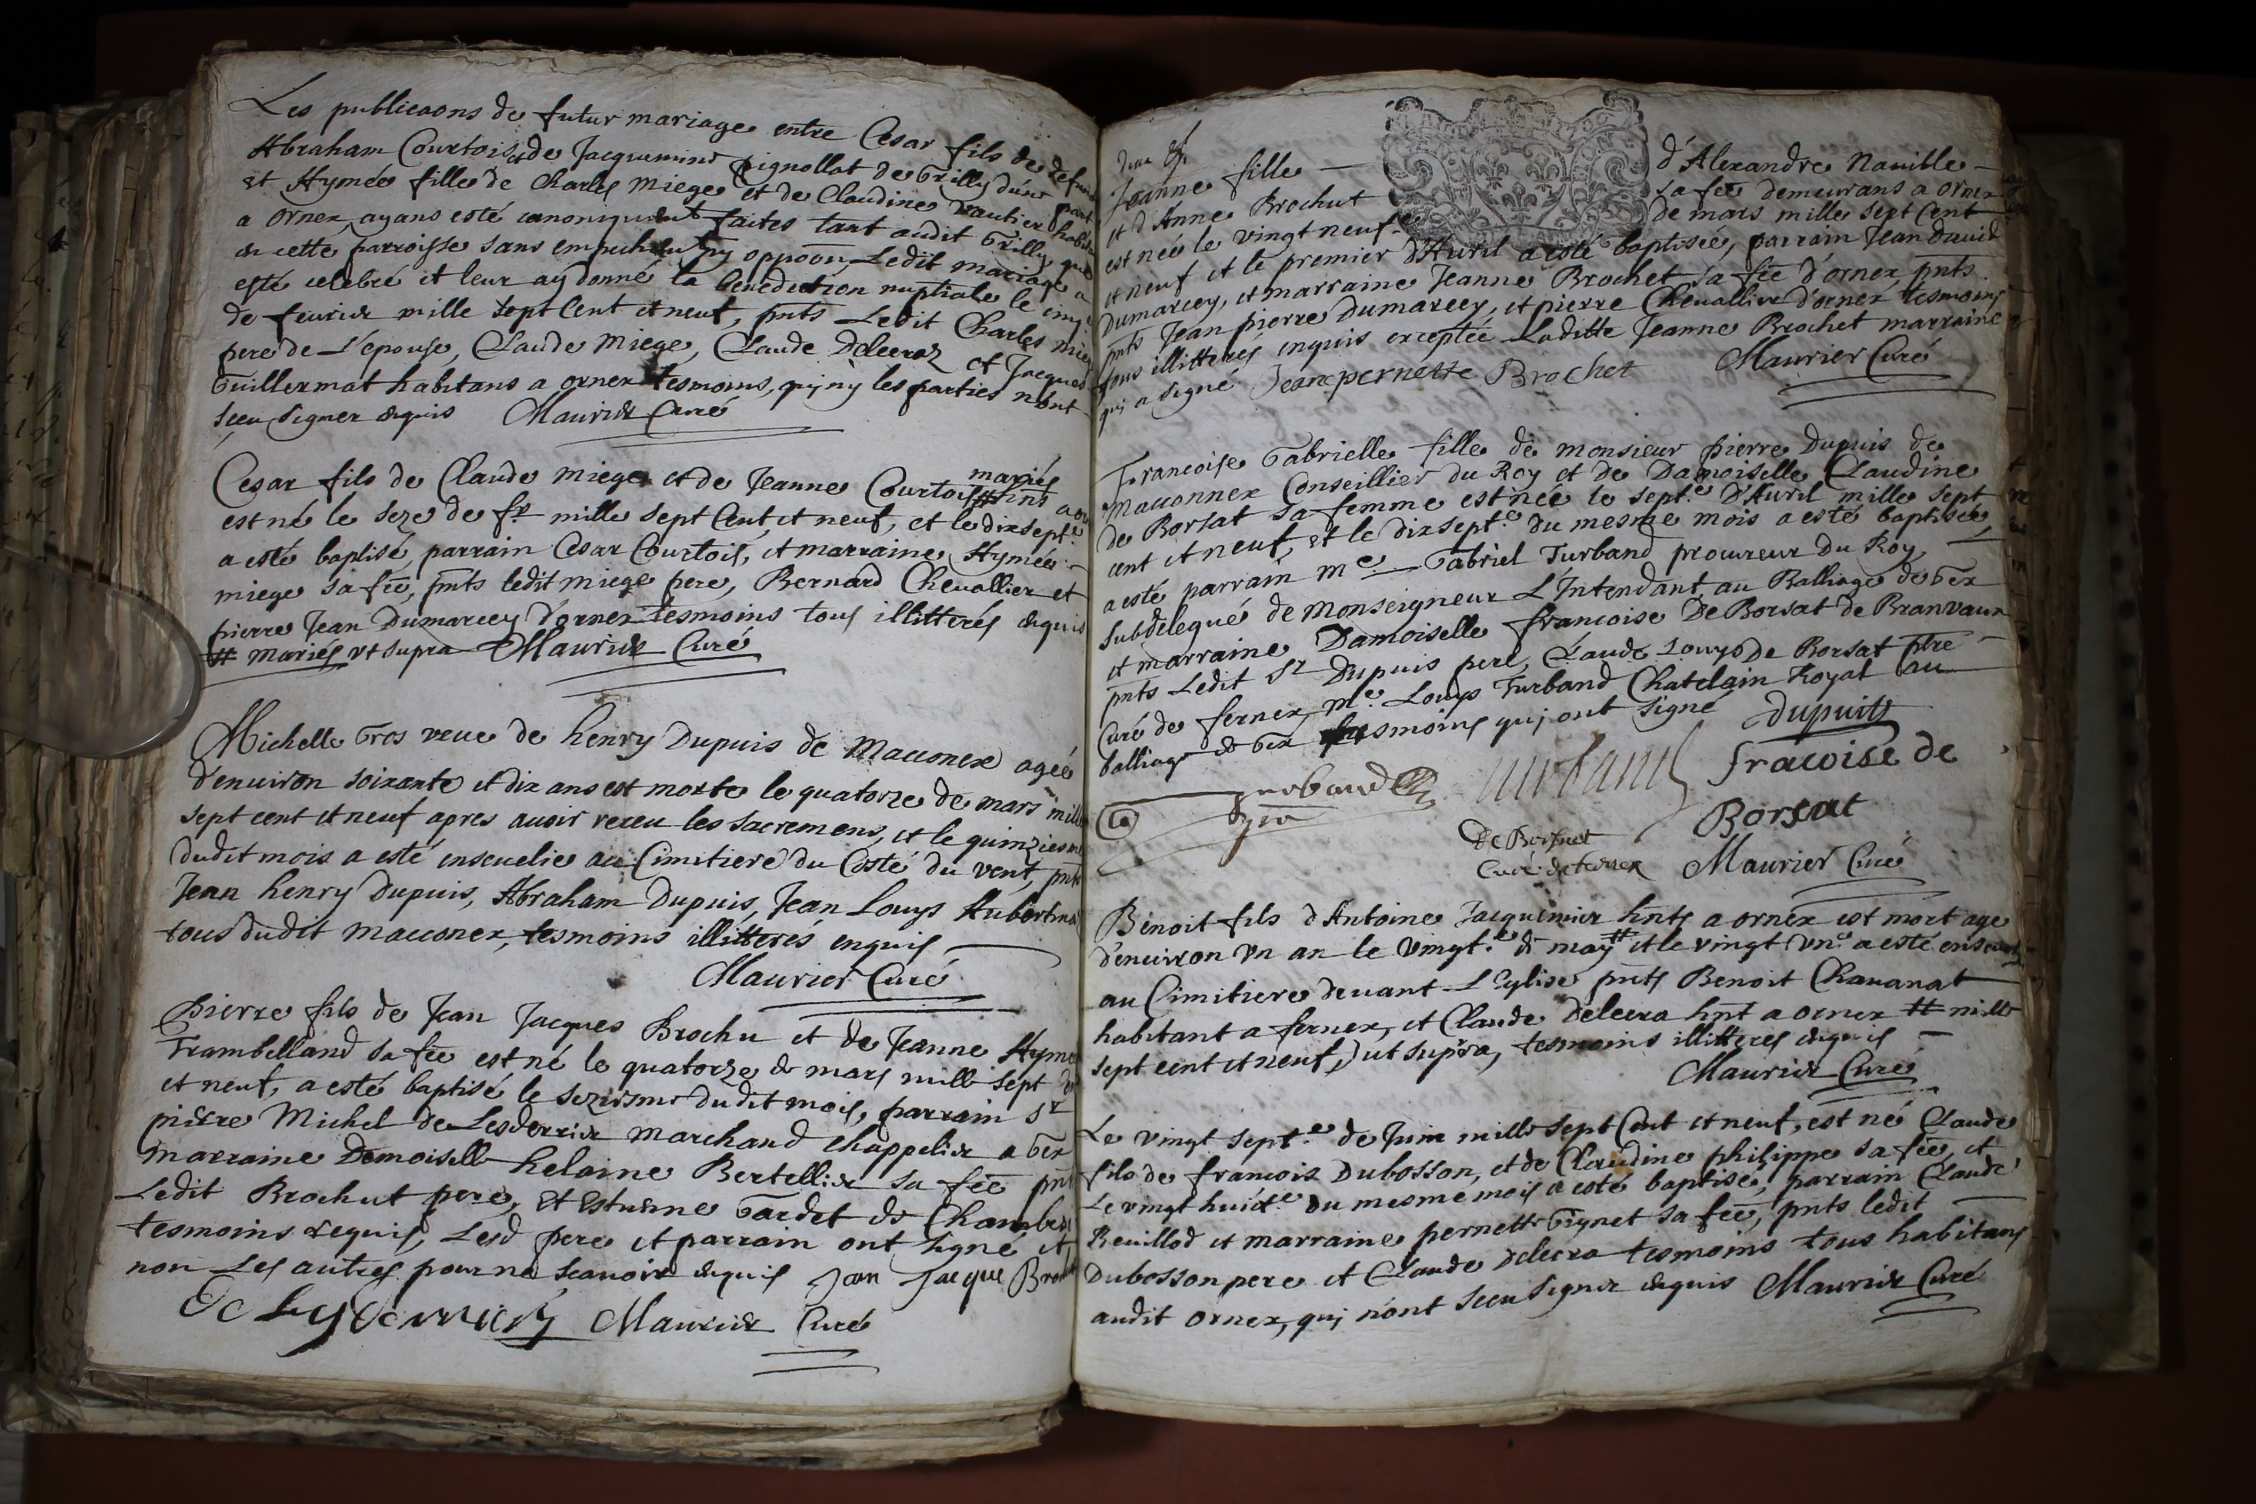 Les publicaons de futur mariage entre Cesar fils de defunt
Abraham Courtois et de Jacquemine Pignollat de Grilly d'une part
et Hymée fille de Charles Miege et de Claudine Vautier habit
a Ornex, ayans esté canoniquement faites tant audit Grilly que
en cette parroisse sans empechement ny oppoon, Ledit mariage a
esté celebré et leur ay donné la benediction nuptiale le cinq
de feurier mille sept Cent et neuf, pnts Ledit Charles Mie
pere de L'épouse, Claude Miege, Claude Delecraz et Jacques
Guillermat habitans a Ornex tesmoins, qui ny les parties n'ont
sceu signer enquis Maurier Curé
mariés
Cesar fils de Claude Miege et de Jeanne Courtois # hnts a or
est né le seze de fr mille sept Cent et neuf, et le dixsept.e
a esté baptisé, parrain Cesar Courtois, et marraine Hymée
Miege sa fee, pnts ledit Miege pere, Bernard Cheuallier et
pierre Jean Dumarcey d'ornex tesmoins tous illitterés enquis
# Mariés vt supra Maurier Curé
Michelle Gros veue de henry Dupuis de Maconex agée
d'enuiron soixante et dix ans est morte le quatorze de mars mille
sept cent et neuf apres auoir receu les sacremens, et le quinziesme
dudit mois a esté enseuelie au Cimitiere du Costé du vent, pnts
Jean henry Dupuis, Abraham Dupuis, Jean Louys
tous dudit Maconex, tesmoins illitterés enquis
Maurier Curé
Pierre fils de Jean Jacques Brochu et de Jeanne Hymé
Frambelland sa fee est né le quatorze de mars mille sept
et neuf, a esté baptisé le seziesme dudit mois, parrain Sr
pierre Michel de Lesderrier marchand chappelier a Gex
marraine Demoiselle helaine Bertellier sa fee pnts
Ledit Brochut pere, Et Estienne Gardet de
tesmoins requis, Lesd pere et parrain ont signé et
non Les autres pour ne scauoir enquis Jean Jacque
Maurier Curé
Jeanne fille d'Alexandre Nauille
et d'Anne Brochut sa fee demeurans a ornex
est née le vingt neuf.e de mars mille sept Cent
et neuf et le premier d'Auril a esté baptisée, parrain Jean Dauid
Dumarcey, et marraine Jeanne Brochet sa fee d'ornex, pnts
pnts Jean pierre Dumarcey, et pierre Cheuallier d'ornex tesmoins
tous illitterés enquis exceptée Laditte Jeanne Brochet marraine
qui a signé Jeanepernette Brochet Maurier Curé
Francoise Gabrielle fille de monsieur pierre Dupuis de
Maconnex Conseillier du Roy et de Damoiselle Claudine
de Borsat sa femme est née le sept.e d'Auril mille sept
cent et neuf, et le dixsept.e du mesme mois a esté baptisée,
a esté parrain Me Gabriel Turband procureur du Roy
subdelegué de Monseigneur L'Intendant au Balliage de Gex
et marraine Damoiselle francoise De Borsat de Branvaux
pnts Ledit Sr Dupuis pere, Claude Louys de Borsat ptre
Curé de fernex, Me Louys Turband Chatelain Royal au
balliage de Gex tesmoins qui ont signé Dupuits
Turband fracoise de
Borsat
De Borsat
Curé de fernex Maurier Curé
Benoit fils d'Antoine Jacquemier hnts a ornex est mort agé
d'enuiron vn an le vingt.e de may # et le vingt vn.e a esté enseueli
au Cimitiere deuant L'Eglise pnts Benoit Chauanat
habitant a fernex, et Claude Delecra hnt a ornex # mille
sept cent et neuf, ut supra, tesmoins illitteres enquis
Maurier Curé
Le vingt sept.e de Juin mille sept Cent et neuf, est né Claude
fils de francois Dubosson, et de Claudine philippe sa fee, et
Le vingt huict.e du mesme mois a esté baptisé, parrain Claude
Reuillod et marraine pernette Gignet sa fee, pnts ledit
Dubosson pere et Claude Delecra tesmoins tous habitans
audit ornex, qui n'ont sceu signer enquis Maurier Curé